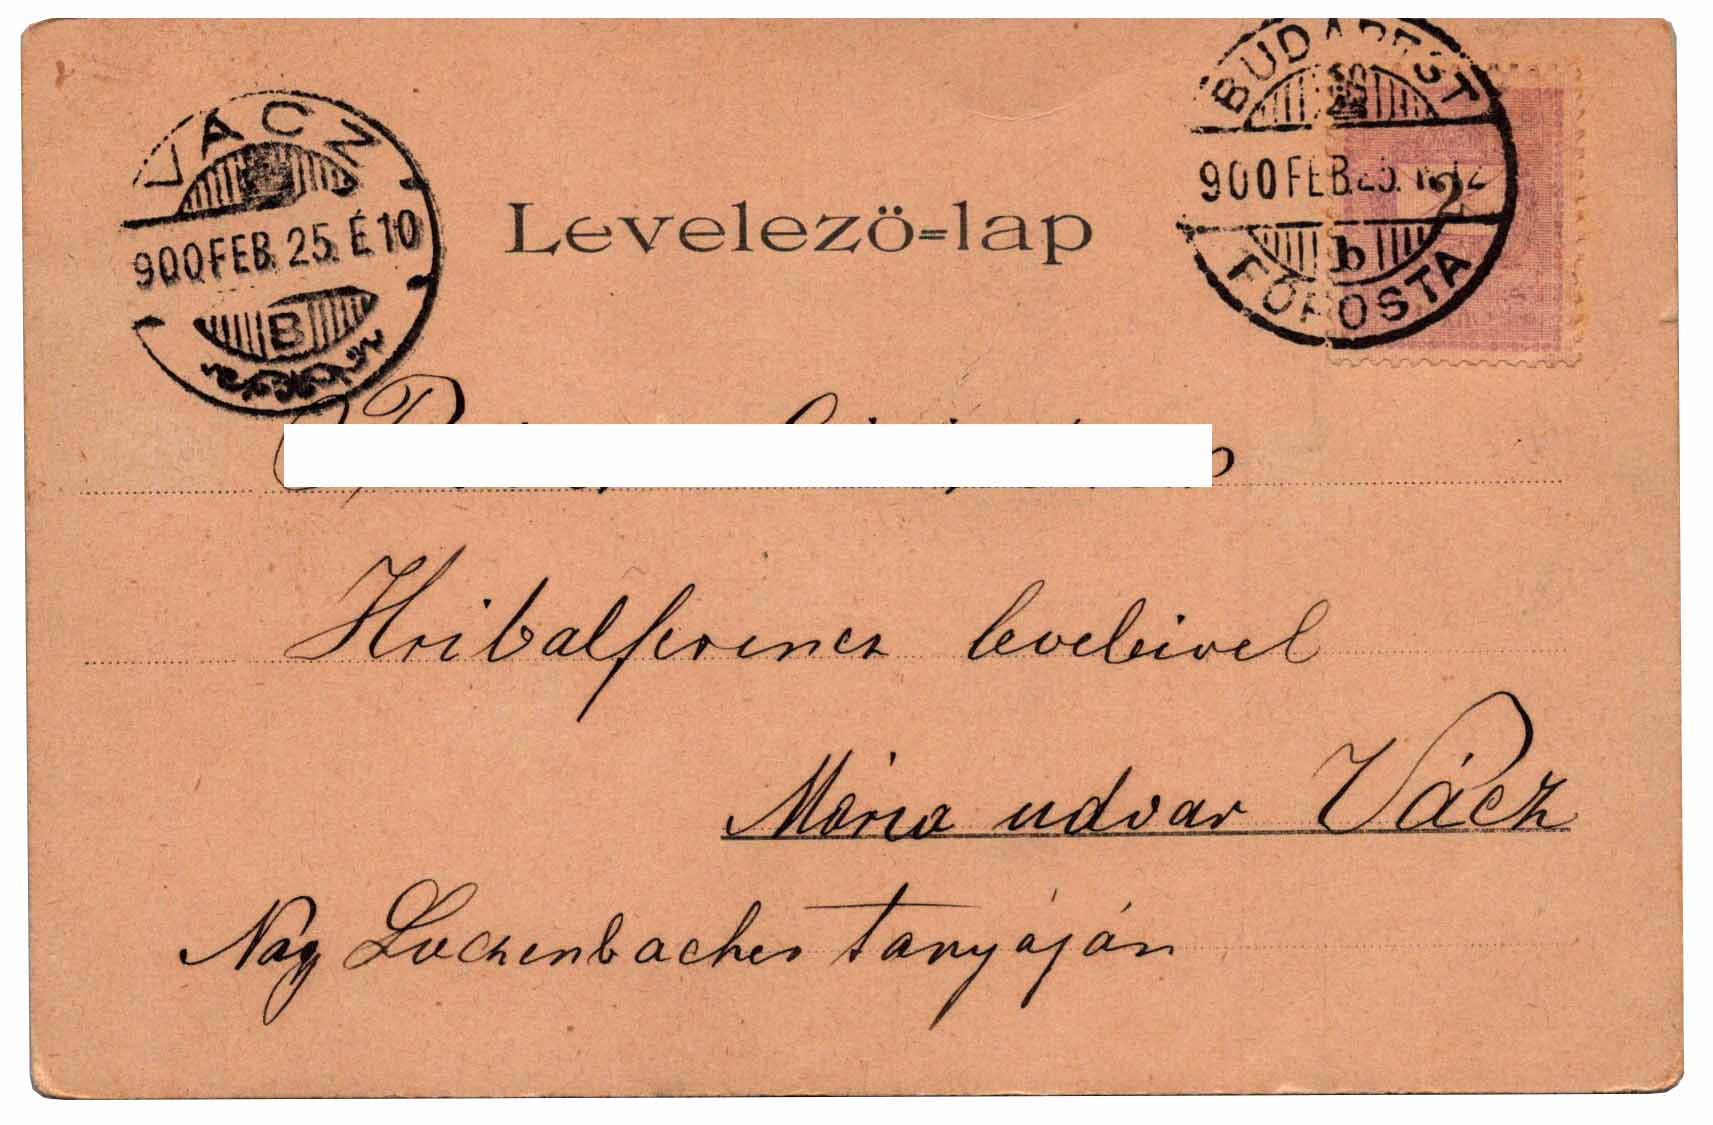 VÁCZ
900 FEB. 25. É 10
B
BUDAPEST
900 FEB. 25.
2
b
FŐPOSTA
Levelező=lap
Hribalferencz leveleivel
Mária udvar Vácz
Nagy Luczenbacher tanyáján